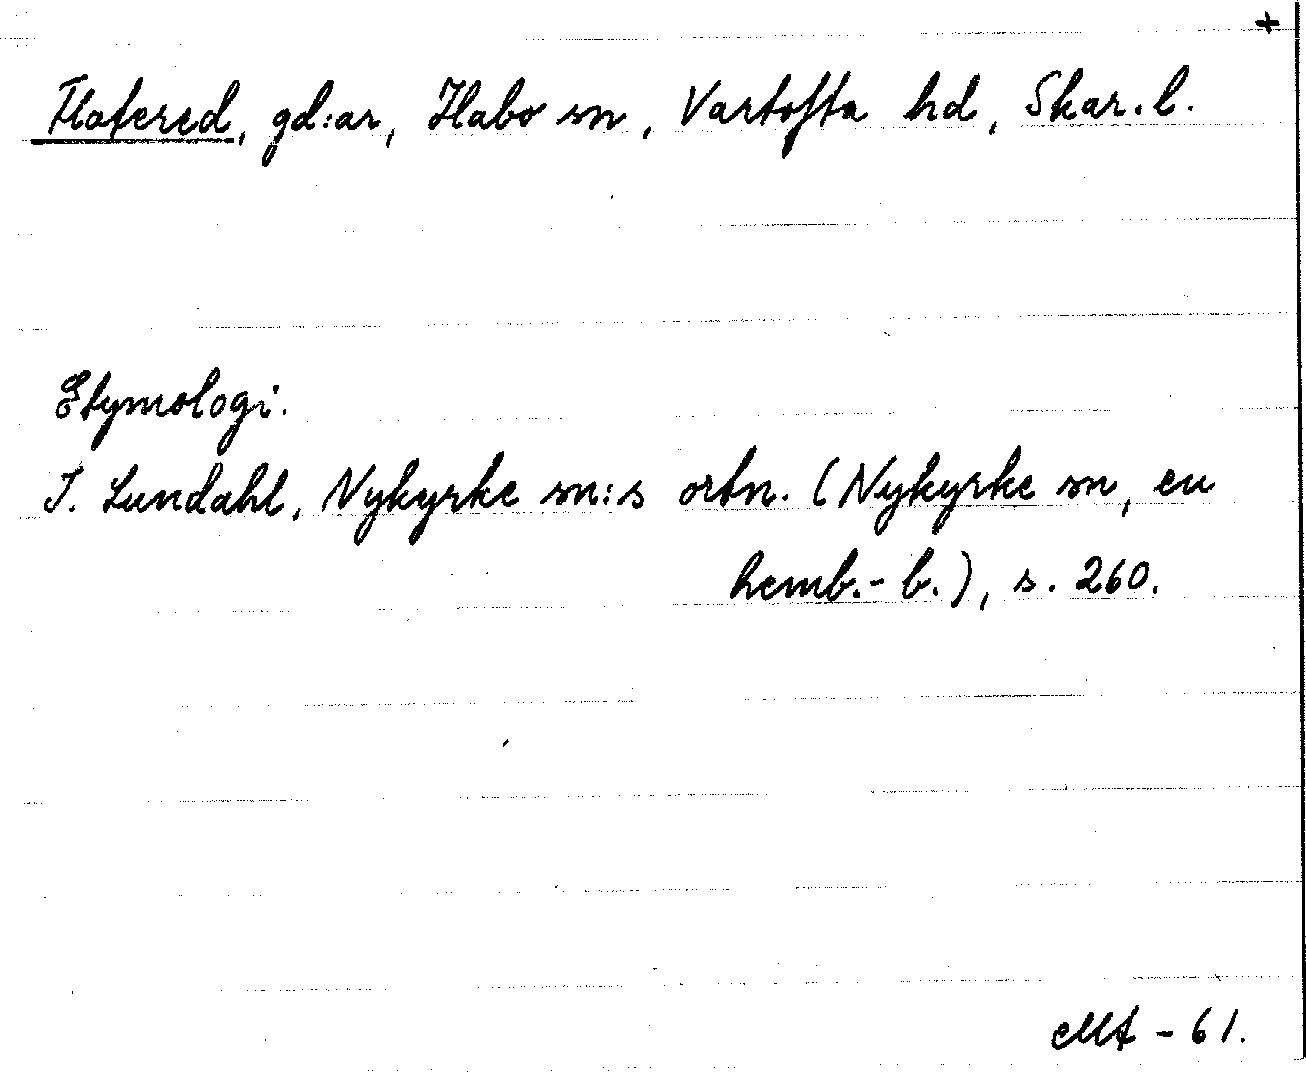 +
Flatered, gd:ar, Habo sn, Vartofta hd, Skar.l.
Etymologi.
I. Lundahl, Nykyrke sn:s ortn. (Nykyrke sn, en
hemb.-b.), s. 260.
MA - 61.